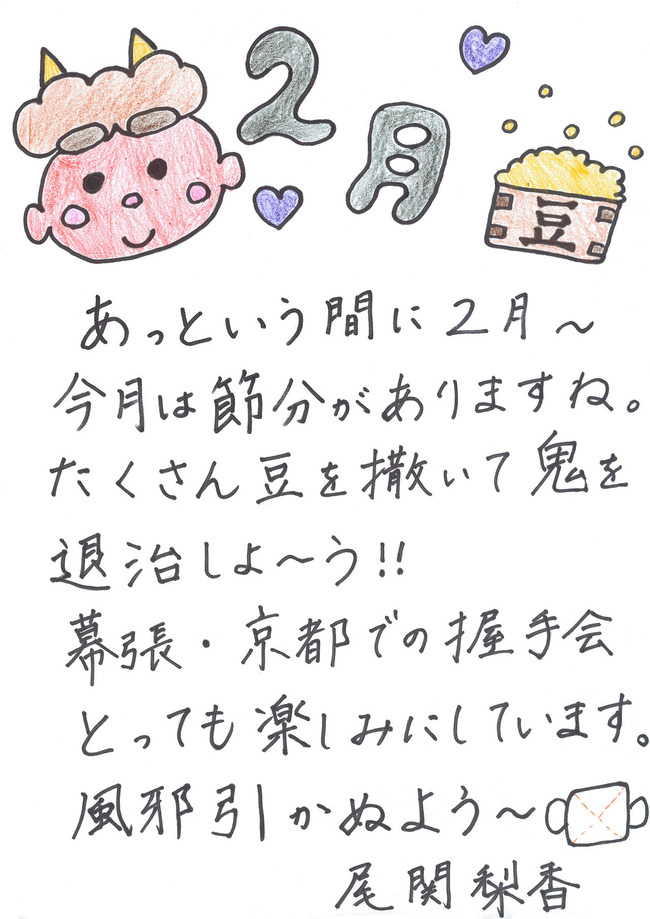 2月
豆
あっという間に2月～
今月は節分がありますね。
たくさん豆を撒いて鬼を
退治しよ～う!!
幕張・京都での握手会
とっても楽しみにしています。
風邪引かぬよう～
尾関梨香